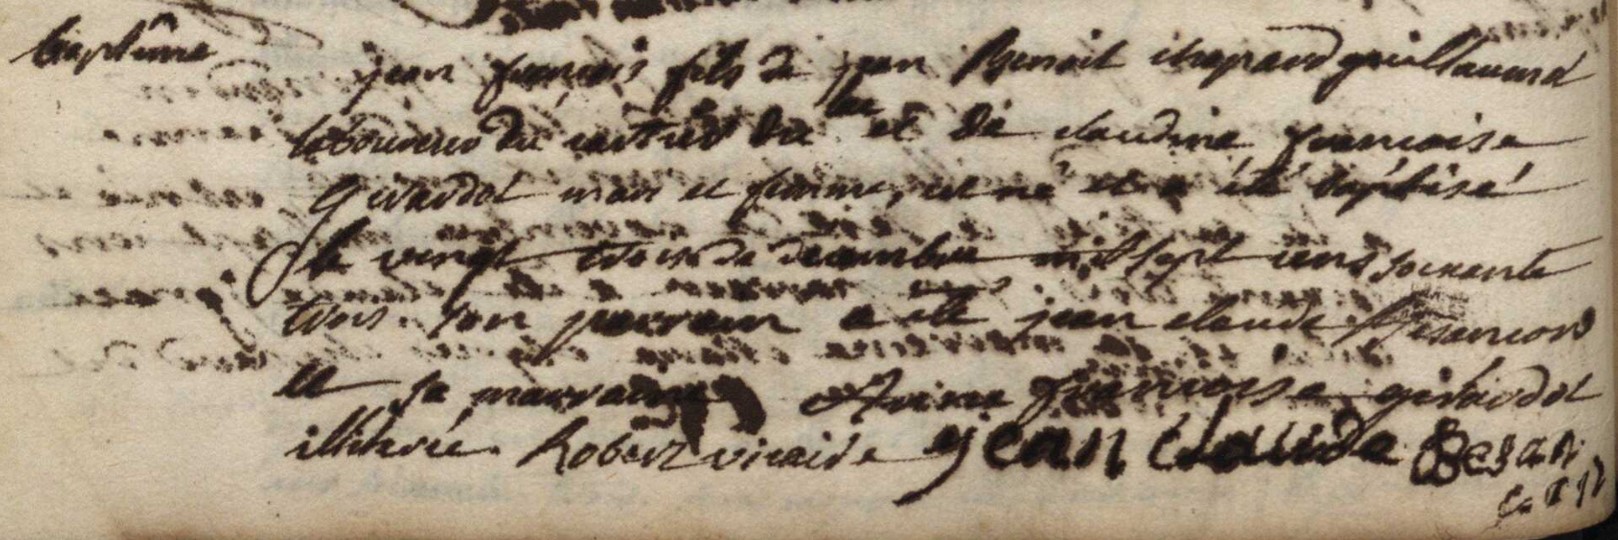 baptême
jean françois fils de jean Benoit chapard guillaume
laboureur du et de claudine francoise
Girardot mari et femme, est né et a été baptisé
le vingt trois de decembre mil sept cens soixante
trois. son parrain a été jean claude Besancon
et sa marraine Anne francoise girardot
illiterée. Robert vicaire jean claude Besan
con